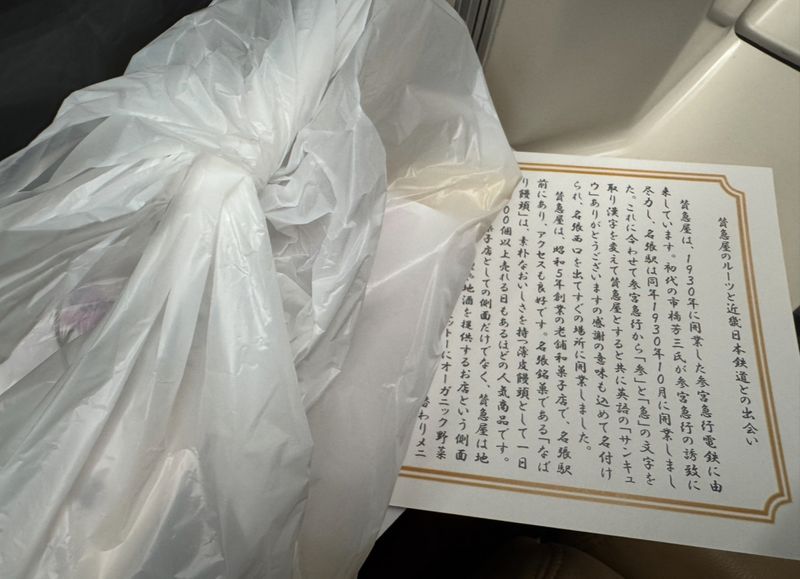 賛急屋のルーツと近畿日本鉄道との出会い
賛急屋は、1930年に開業した参宮急行電鉄に由
来しています。初代の市橋芳三氏が参宮急行の誘致に
尽力し、名張駅は同年1930年10月に開業しまし
た。これに合わせて参宮急行から「参」と「急」の文字を
取り漢字を変えて賛急屋とすると共に英語の「サンキュ
ウ」ありがとうございますの感謝の意味も込めて名付け
られ、名張西口を出てすぐの場所に開業しました。
賛急屋は、昭和5年創業の老舗和菓子店で、名張駅
前にあり、アクセスも良好です。名張銘菓である「なば
り饅頭」は、素朴なおいしさを持つ薄皮饅頭として一日
00個以上売れる日もあるほどの人気商品です。
菓子店としての側面だけでなく、賛急屋は地
地酒を提供するお店という側面
ットーにオーガニック野菜
替わりメニ